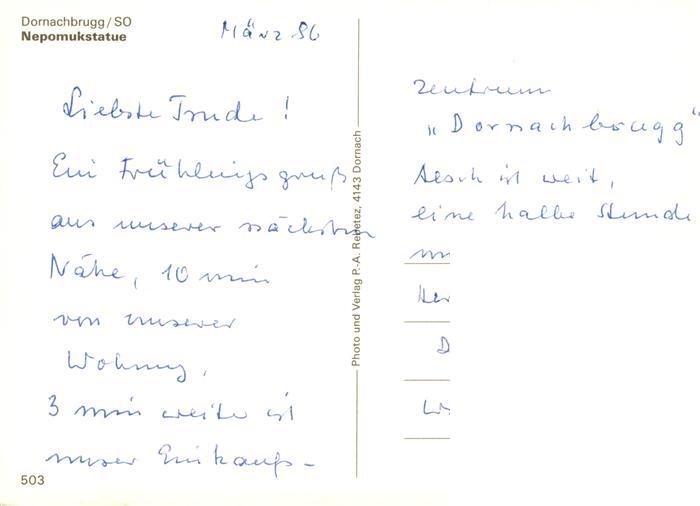 Dornachbrugg/SO
Nepomukstatue
März 86
Liebste Trude!
Ein Frühlingsgruß
aus unserer nächsten
Nähe, 10 min
von unserer
Wohnung,
3 min weiter ist
unser Einkaufs-
503
Photo und Verlag P.-A. Rebetez, 4143 Dornach
zentrum
"Dornachbrugg"
Aesch ist weit,
eine halbe Stunde